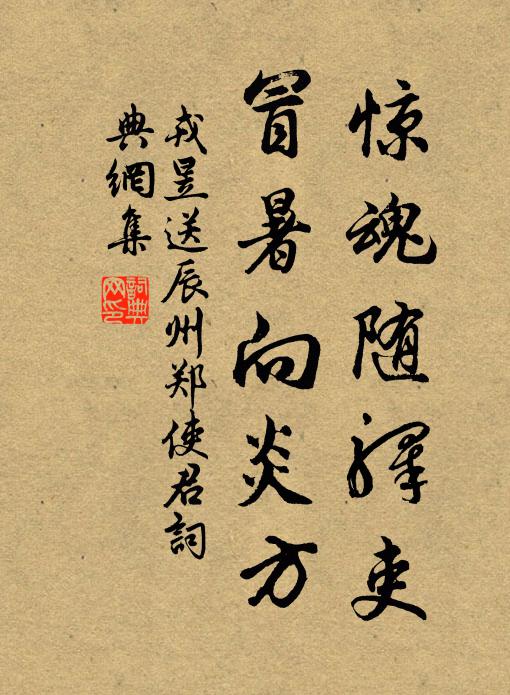 惊魂随驛吏
冒暑向炎方
戎昱送辰州郑使君詞
典網集
詞典
网印